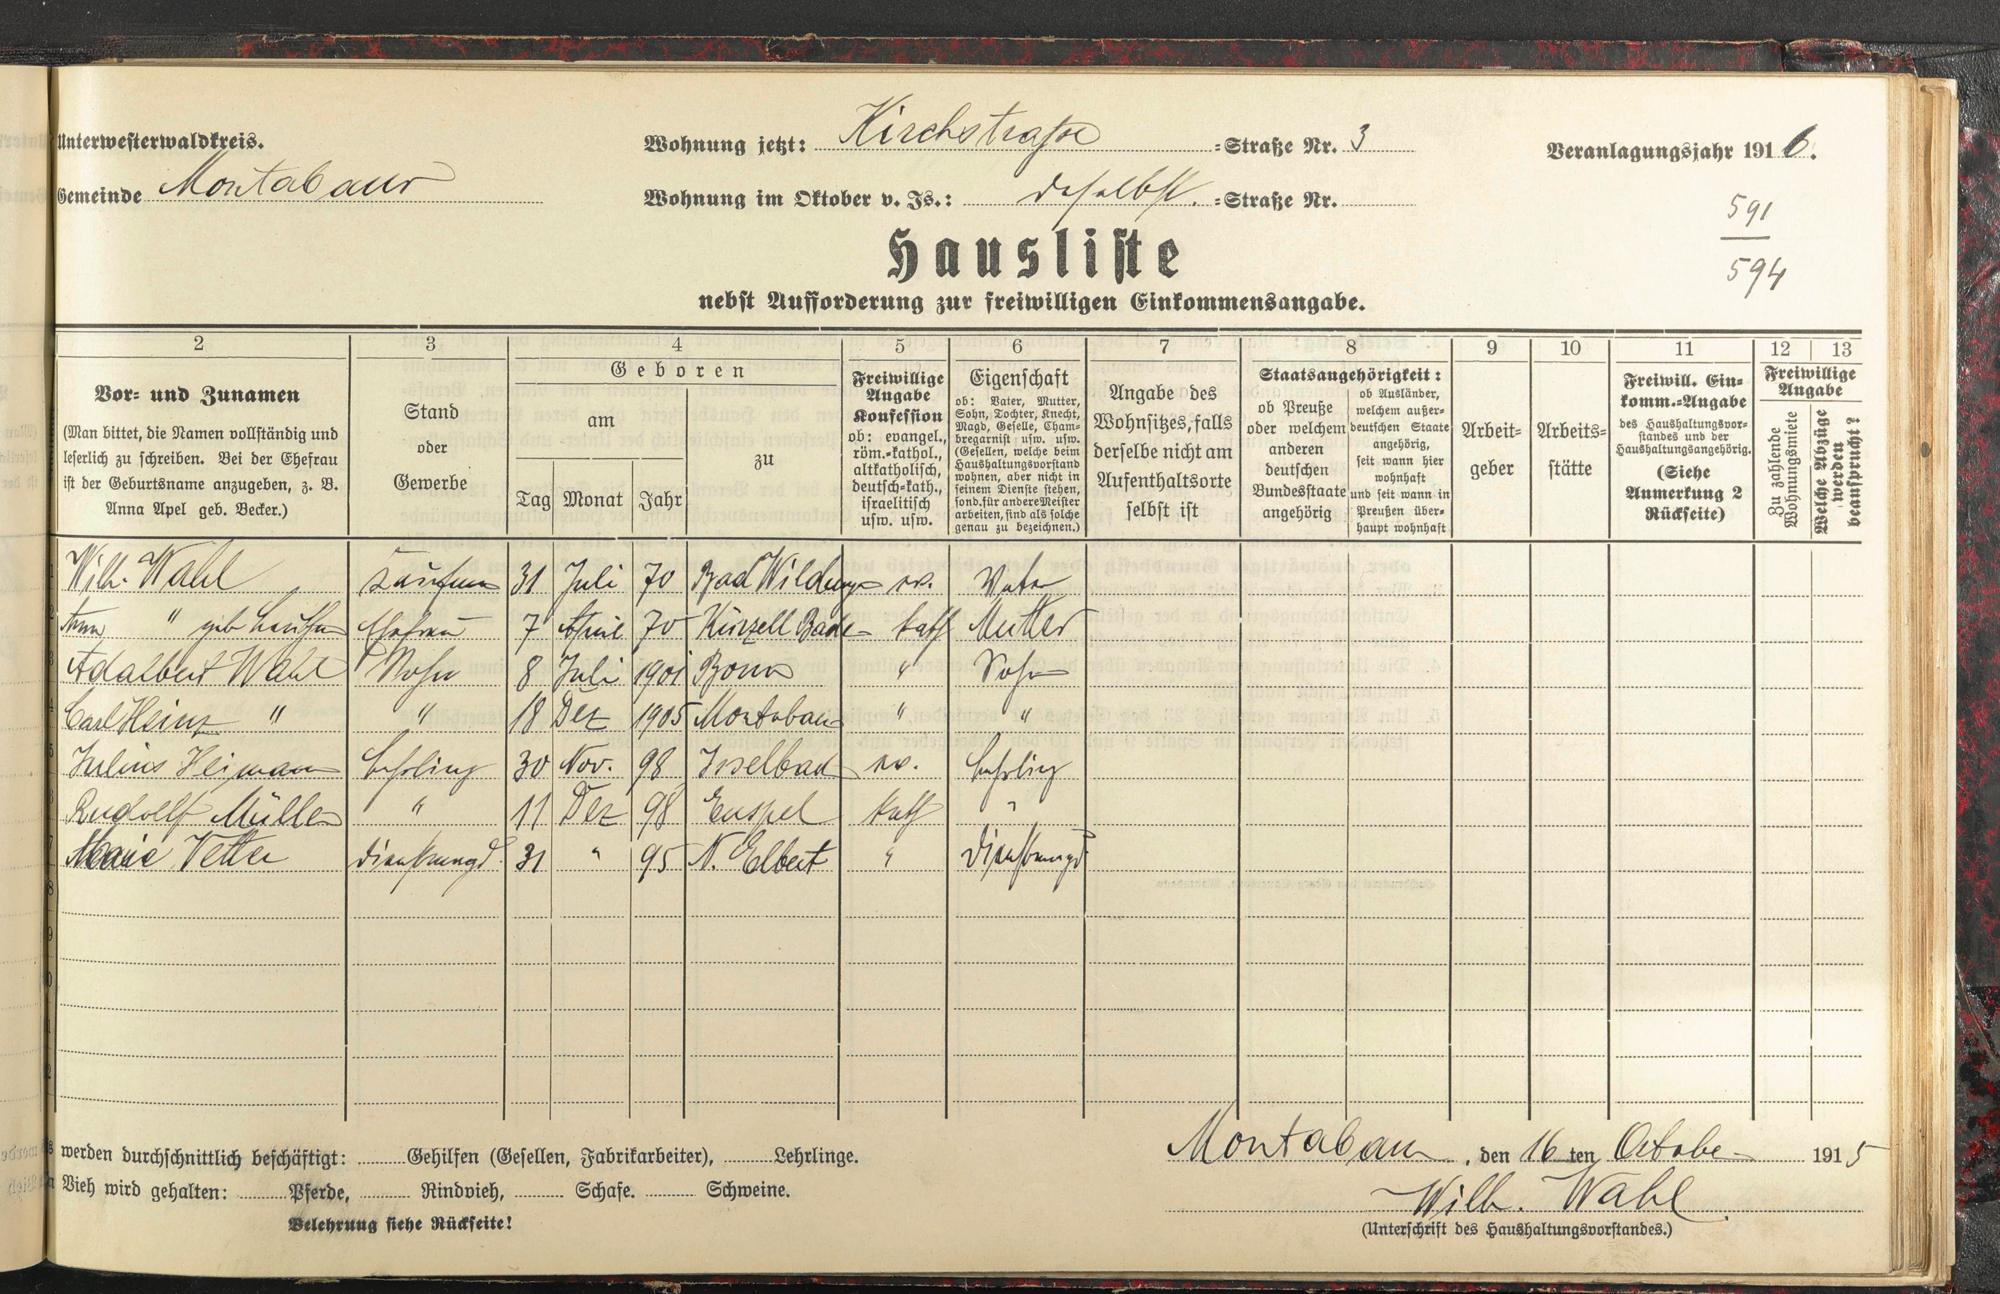 Unterwesterwaldkreis.
Gemeinde Montabaur
Wohnung jetzt: Kirchstraße =Straße Nr. 3
Wohnung im Oktober v. Js.: daselbst. =Straße Nr.
Veranlagungsjahr 1916.
591
594
Hausliste
nebst Aufforderung zur freiwilligen Einkommensangabe.
2 3 4 5 6 7 8 9 10 11 12 13
Vor- und Zunamen
(Man bittet, die Namen vollständig und
leserlich zu schreiben. Bei der Ehefrau
ist der Geburtsname anzugeben, z. B.
Anna Apel geb. Becker.)
Stand
oder
Gewerbe
Geboren
am
Tag Monat Jahr
zu
Freiwillige
Angabe
Konfession
ob: evangel.,
röm.-kathol.,
altkatholisch,
deutsch-kath.,
israelitisch
usw. usw.
Eigenschaft
ob: Vater, Mutter,
Sohn, Tochter, Knecht,
Magd, Geselle, Cham-
bregarnist usw. usw.
(Gesellen, welche beim
Haushaltungsvorstand
wohnen, aber nicht in
seinem Dienste stehen,
sond. für andere Meister
arbeiten, sind als solche
genau zu bezeichnen.)
Angabe des
Wohnsitzes, falls
derselbe nicht am
Aufenthaltsorte
selbst ist
Staatsangehörigkeit:
ob Preuße
oder welchem
anderen
deutschen
Bundesstaate
angehörig
ob Ausländer,
welchem außer-
deutschen Staate
angehörig,
seit wann hier
wohnhaft
und seit wann in
Preußen über-
haupt wohnhaft
Arbeit-
geber
Arbeits-
stätte
Freiwill. Ein-
komm.-Angabe
des Haushaltungsvor-
standes und der
Haushaltungsangehörig.
(Siehe
Anmerkung 2
Rückseite)
Freiwillige
Angabe
Zu zahlende
Wohnungsmiete
Welche Abzüge
werden
beansprucht?
1 Wilh. Wahl Kaufmann 31 Juli 70 Bad Wildungen ev. Vater
2 Anna " geb Ehefrau 7 April 70 Kürzell Baden kath Mutter
3 Adalbert Wahl Sohn 8 Juli 1901 Bonn " Sohn
4 Carl Heinz " " 18 Dez 1905 Montabaur " "
5 Julius Heimann Lehrling 30 Nov. 98 Isselbach ev. Lehrling
6 Rudolf Müller " 11 Dez 98 Enspel kath "
7 Marie Vetter Dienstmagd 31 " 95 N. Elbert " Dienstmagd
8
9
0
1
2
werden durchschnittlich beschäftigt: Gehilfen (Gesellen, Fabrikarbeiter), Lehrlinge.
Vieh wird gehalten: Pferde, Rindvieh, Schafe. Schweine.
Belehrung siehe Rückseite!
Montabaur, den 16 ten October 1915
Wilh. Wahl.
(Unterschrift des Haushaltungsvorstandes.)